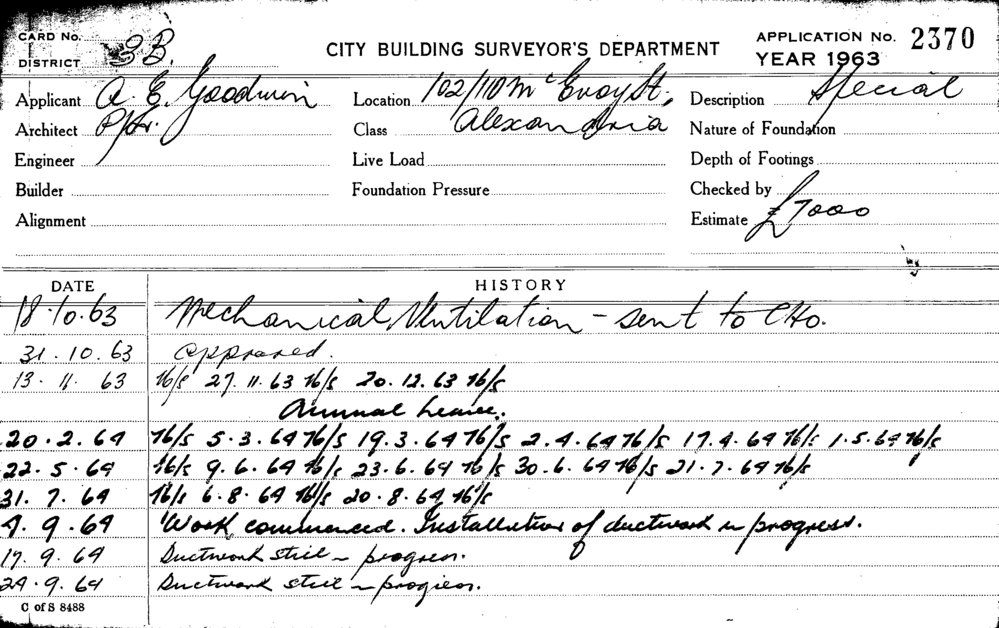 CARD No.
DISTRICT 3B.
CITY BUILDING SURVEYOR'S DEPARTMENT
APPLICATION No. 2370
YEAR 1963
Applicant A. E. Goodwin
Location 102/110 McEvoy St,
Description Special
Architect
Class Alexandria
Nature of Foundation
Engineer
Live Load
Depth of Footings
Builder
Foundation Pressure
Checked by
Alignment
Estimate £7000
DATE HISTORY
18.10.63 Mechanical Ventilation - sent to CHO.
31.10.63 Approved.
13.11.63 N/S 27.11.63 N/S 20.12.63 N/S
Annual Leave.
20.2.64 N/S 5.3.64 N/S 19.3.64 N/S 2.4.64 N/S 17.4.64 N/S 1.5.64 N/S
22.5.64 N/S 9.6.64 N/S 23.6.64 N/S 30.6.64 N/S 21.7.64 N/S
31.7.64 N/S 6.8.64 N/S 20.8.64 N/S
4.9.64 Work commenced. Installation of ductwork in progress.
17.9.64 Ductwork still in progress.
24.9.64 Ductwork still in progress.
C of S 8488